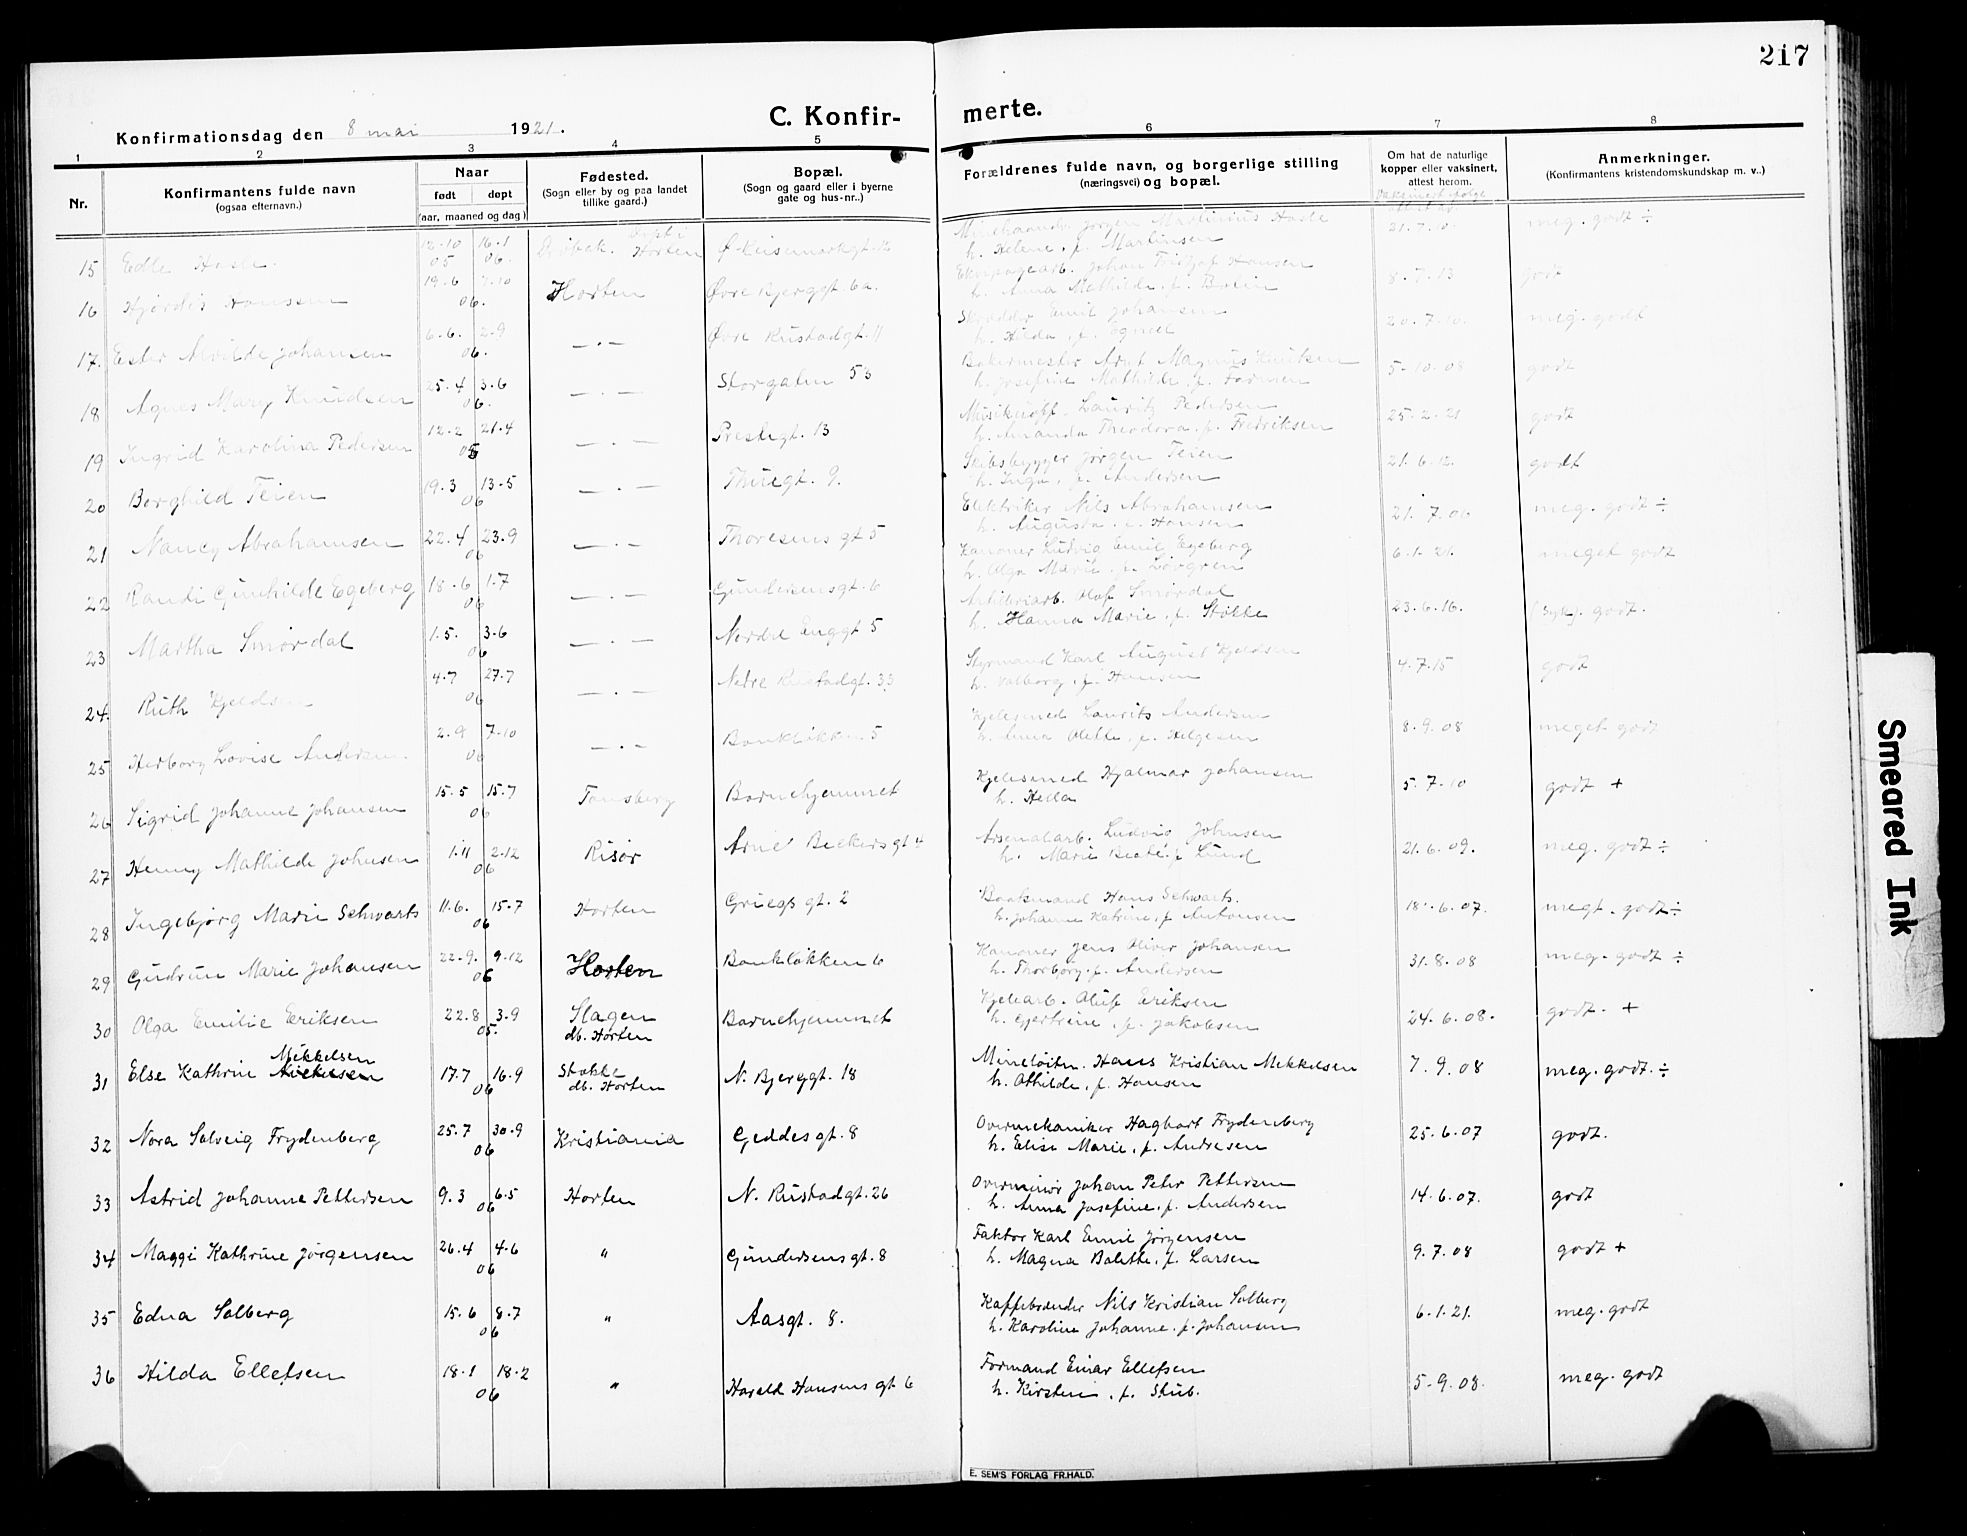 217
C. Konfir- merte.
Konfirmationsdag den 8 mai 1921.
1 2 3 4 5 6 7 8
Nr.
Konfirmantens fulde navn
(ogsaa efternavn.)
Naar
født døpt
(aar, maaned og dag)
Fødested.
(Sogn eller by og paa landet
tillike gaard.)
Bopæl.
(Sogn og gaard eller i byerne
gate og hus-nr..)
Forældrenes fulde navn, og borgerlige stilling
(næringsvei) og bopæl.
Om hat de naturlige
kopper eller vaksinert,
attest herom.
Anmerkninger.
(Konfirmantens kristendomskundskap m. v..)
15 Edle Hasle. 12.10 05 16.1 06. Drøbak. døpt i Horten
Jørgen Martinius Hasle 21.7.10 meg. godt ÷
h. Helene, f. Martinsen
16 Hjørdis Hansen 19.6 06. Horten Øvre Bjerggt. 6a.
Johan Fritjof Hansen 8.7.13 godt
h. Anna Mathilde, f.
17. Ester Alvilde Johansen 6.6. 2.9 06. —.— Øvre Rustadgt. 11
Skrædder Emil Johansen 20.7.10. meg. godt
h. Hilda, f.
18 Agnes Mary Knudsen 25.4 3.6 06. —.— Storgaten 53
Bakermester Magnus Knudsen 5-10.08 godt
h. Josefine Mathilde, f.
19 Ingrid Karolina Pedersen 12.2 21.4 06 —.— Prestegt. 13
Lauritz Pedersen 25.2.21 godt
h. Amanda Theodora, f. Fredriksen
20 Borghild Teien 19.3 13.5 06 —.— Thuegt. 9.
Skibsbygger Jørgen Teien 21.6.12. godt
h. Inga, f. Andersen
21 Nancy Abrahamsen 22.4 23.9 06 —.— Thoresens gt 5
Elektriker Nils Abrahamsen 21.7.06 meg. godt ÷
h. Augusta, f. Hansen
22 Randi Gunhilde Egeberg 18.6 1.7 06 —.— Gundersensgt. 6
Kanoner Ludvig Emil Egeberg 6.1.21. meget godt
h. Olga Marie, f.
23 Martha Smørdal 1.5. 3.6 06 —.— Nordre Enggt 5
Artilleriarb. Olaf Smørdal 23.6.16. godt.
h. Hanna Marie, f. Stokke
24. Ruth Kjeldsen 4.7 27.7 06 —.— Nedre Rustadgt. 33
Styrmand Karl August Kjeldsen 4.7.15 godt
h. Valborg, f. Hansen
25 Herborg Lovise Andersen. 2.9 7.10 06 —.— Bankløkken 5
Kjelesmed Laurits Andersen 8.9.08 meget godt
h. Anna Olette, f. Helgesen
26 Sigrid Johanne Johansen 15.5 15.7 06 Tønsberg Barnehjemmet
Kjelesmed Hjalmar Johansen 5.7.10 godt +
h. Hella
27 Henny Mathilde Johnsen 1.11 2.12 06 Risør Arne Beckersgt 4
Arsenalarb. Ludvig Johnsen 21.6.09. meg. godt ÷
h. Marie Beate, f. Lund
28 Ingebjørg Marie Schwarts 11.6. 15.7 06 Horten Griegs gt. 2
Baatsmand Hans Schwarts. 18.6.07. megt. godt ÷
h. Johanne Katrine, f. Antonsen
29 Gudrun Marie Johansen 22.9. 9.12 06 Horten Bankløkken 6
Kanoner Jens Oliver Johansen 31.8.08 meg. godt ÷
h. Thorborg, f. Andersen
30 Olga Emilie Eriksen 22.8 3.9 05. Slagen db. Horten Barnehjemmet
Kjelearb. Oluf Eriksen 24.6.08. godt. +
h. Gjertrine, f. Jakobsen
31 Else Kathrine Mikkelsen 17.7 16.9 06 Stokke db. Horten N. Bjerggt. 18
Mineløitn. Hans Kristian Mekkelsen 7.9.08 meg. godt. ÷
h. Athilde, f. Hansen
32 Nora Solveig Frydenberg 25.7 30.9 06 Kristiania Geddesgt. 8
Overmekaniker Hagbart Frydenberg 25.6.07 godt.
h. Elise Marie, f. Andresen
33 Astrid Johanne Pettersen 9.3 6.5 06 Horten N. Rustadgt. 26
Overminør Johan Peter Pettersen 14.6.07. godt
h. Anna Josefine, f. Andersen
34 Maggi Kathrine Jørgensen 26.4 4.6 06 " Gundersensgt. 8
Faktor Karl Emil Jørgensen 9.7.08 godt +
h. Magna Bolette, f. Larsen
35 Edna Solberg 15.6 8.7 06 " Aasgt. 8.
Kaffebrænder Nils Kristian Solberg 6.1.21. meg. godt
h. Karoline Johanne, f. Johansen
36 Hilda Ellefsen 18.1 18.2 06 " Harald Hansens gt. 6
Formand Einar Ellefsen 5.9.08. meg. godt
h. Kirsten, f. Stub.
E. SEM'S FORLAG FR.HALD.
Smeared Ink